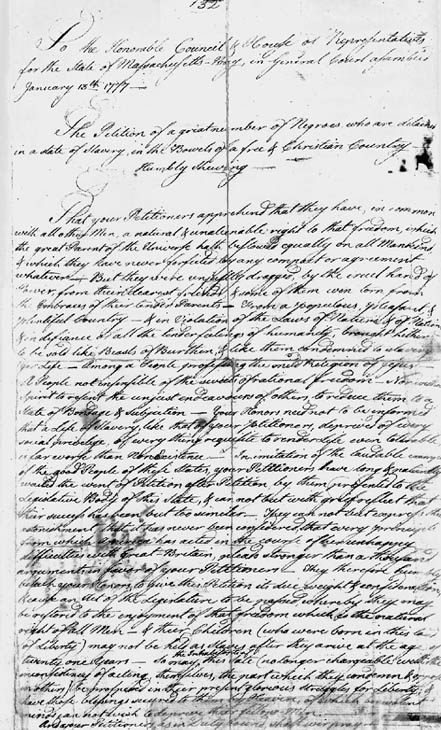 132
To the Honorable Council & House of Representatives
for the State of Massachusetts-Bay, in General Court assembled
January 13th 1777 —
The Petition of a great number of Negroes who are detained
in a state of Slavery, in the Bowels of a free & Christian Country —
Humbly Shewing —
That your Petitioners apprehend that they have, in common
with all other Men, a natural & unalienable right to that freedom, which
the great Parent of the Universe hath bestowed equally on all Mankind
& which they have never forfeited by any compact or agreement
whatever — But they were unjustly dragged, by the cruel hand of
Power, from their dearest friends, & some of them even torn from
the Embraces of their tender Parents — From a populous, pleasant &
plentiful Country — & in Violation of the Laws of Nature & of Nation
& in defiance of all the tender feelings of humanity, brought hither
to be sold like Beasts of Burthen, & like them condemned to slavery
for Life — Among a People professing the mild Religion of Jesus —
A People not insensible of the sweets of rational freedom — Nor without
spirit to resent the unjust endeavours of others to reduce them to a
State of Bondage & Subjection — Your Honors need not to be informed
that a Life of Slavery, like that of your petitioners, deprived of every
social privilege, of every thing requisite to render Life even tolerable
is far worse than Non-Existence — In imitation of the laudable example
of the good People of these States, your Petitioners have long & patiently
waited the event of Petition after Petition by them presented to the
Legislative Body of this State, & can not but with grief reflect that
their success has been but too similar — They can not but express their
astonishment that it has never been considered that every principle
from which America has acted in the course of her unhappy
difficulties with Great-Britain, pleads stronger than a thousand
arguments in favor of your Petitioners — They therefore humbly
beseech your Honors, to give this Petition its due weight & consideration,
& cause an Act of the Legislature to be passed whereby they may
be restored to the enjoyment of that freedom which is the natural
right of all Men — & their Children (who were born in this Land
of Liberty) may not be held as Slaves after they arrive at the age
twenty one Years — So may the Inhabitants of this State (no longer chargeable with the
inconsistency of acting, themselves, the part which they condemn & oppose
in others) be prospered in their present glorious struggles for Liberty; &
have those blessings secured to them by Heaven, of which benevolent
minds can not wish to deprive their fellow Men.
And your Petitioners, as in Duty bound shall ever pray —